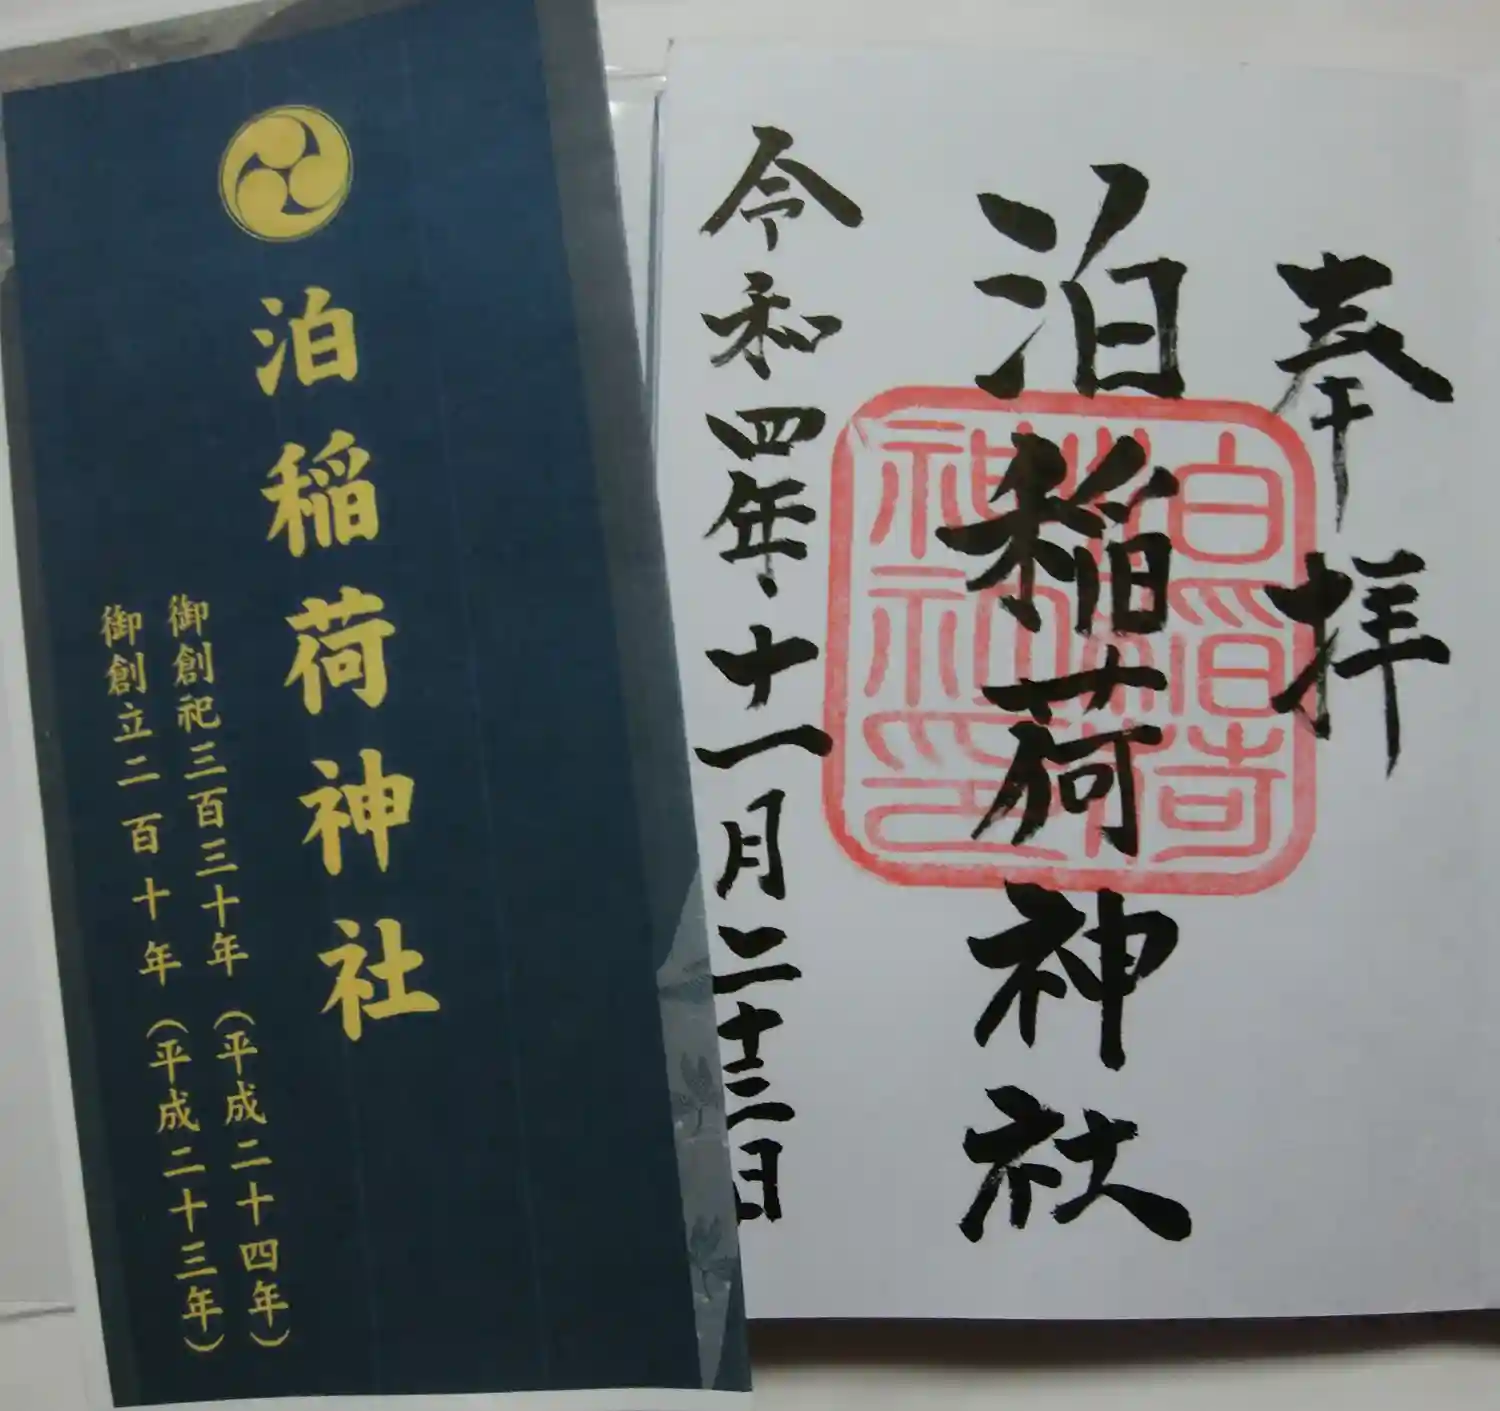 奉拝
泊稲荷神社
令和四年十一月二十三日
泊稲荷神社
御創祀三百三十年（平成二十四年）
御創立二百十年（平成二十三年）